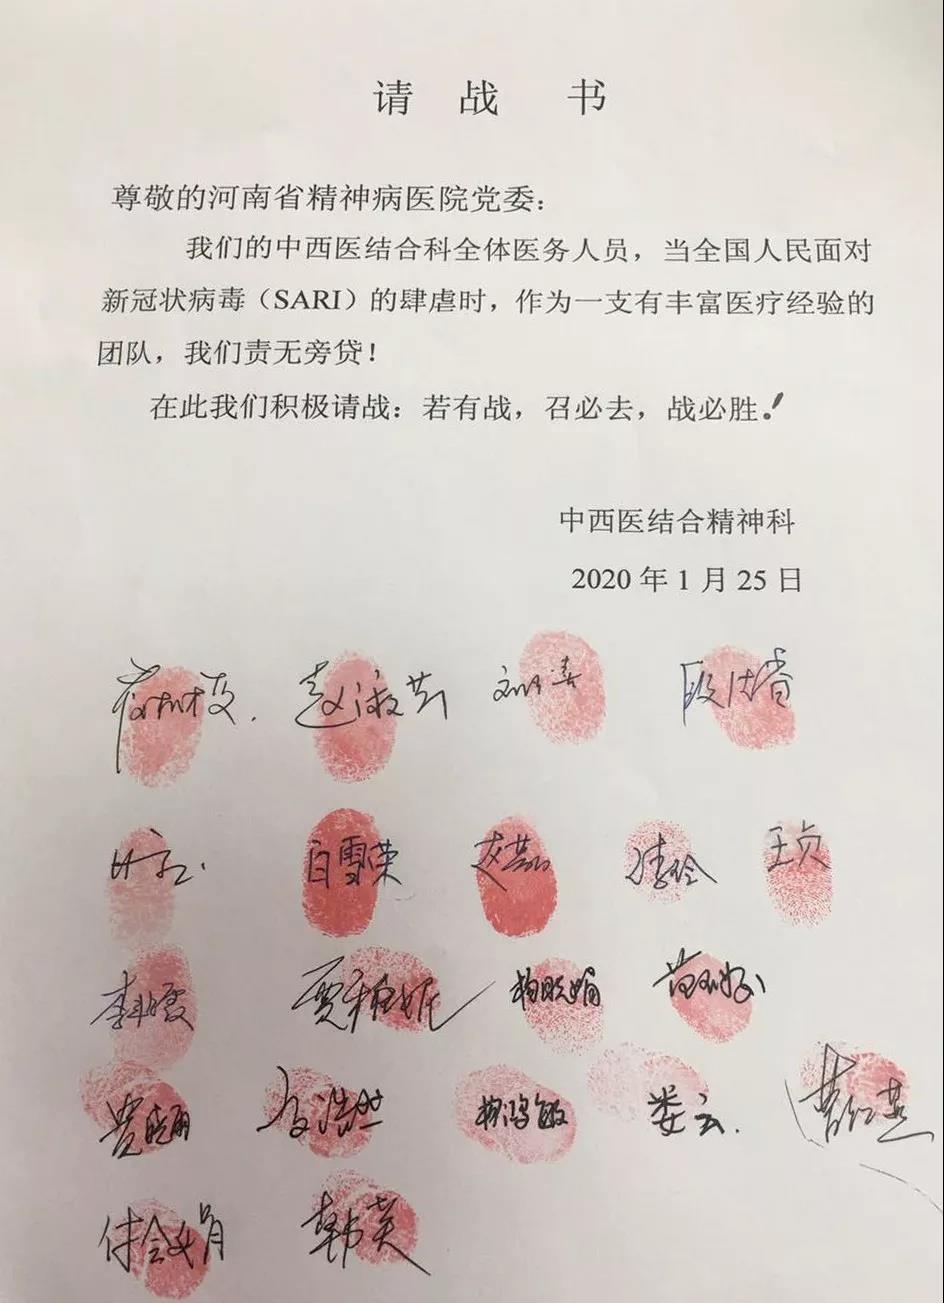 请战书
尊敬的河南省精神病医院党委：
我们的中西医结合科全体医务人员，当全国人民面对
新冠状病毒（SARI）的肆虐时，作为一支有丰富医疗经验的
团队，我们责无旁贷！
在此我们积极请战：若有战，召必去，战必胜！
中西医结合精神科
2020 年 1 月 25 日
白雪荣 王贞
贾雅妮 杨晓娟
杨鸿敏 娄云
付会娟 韩英